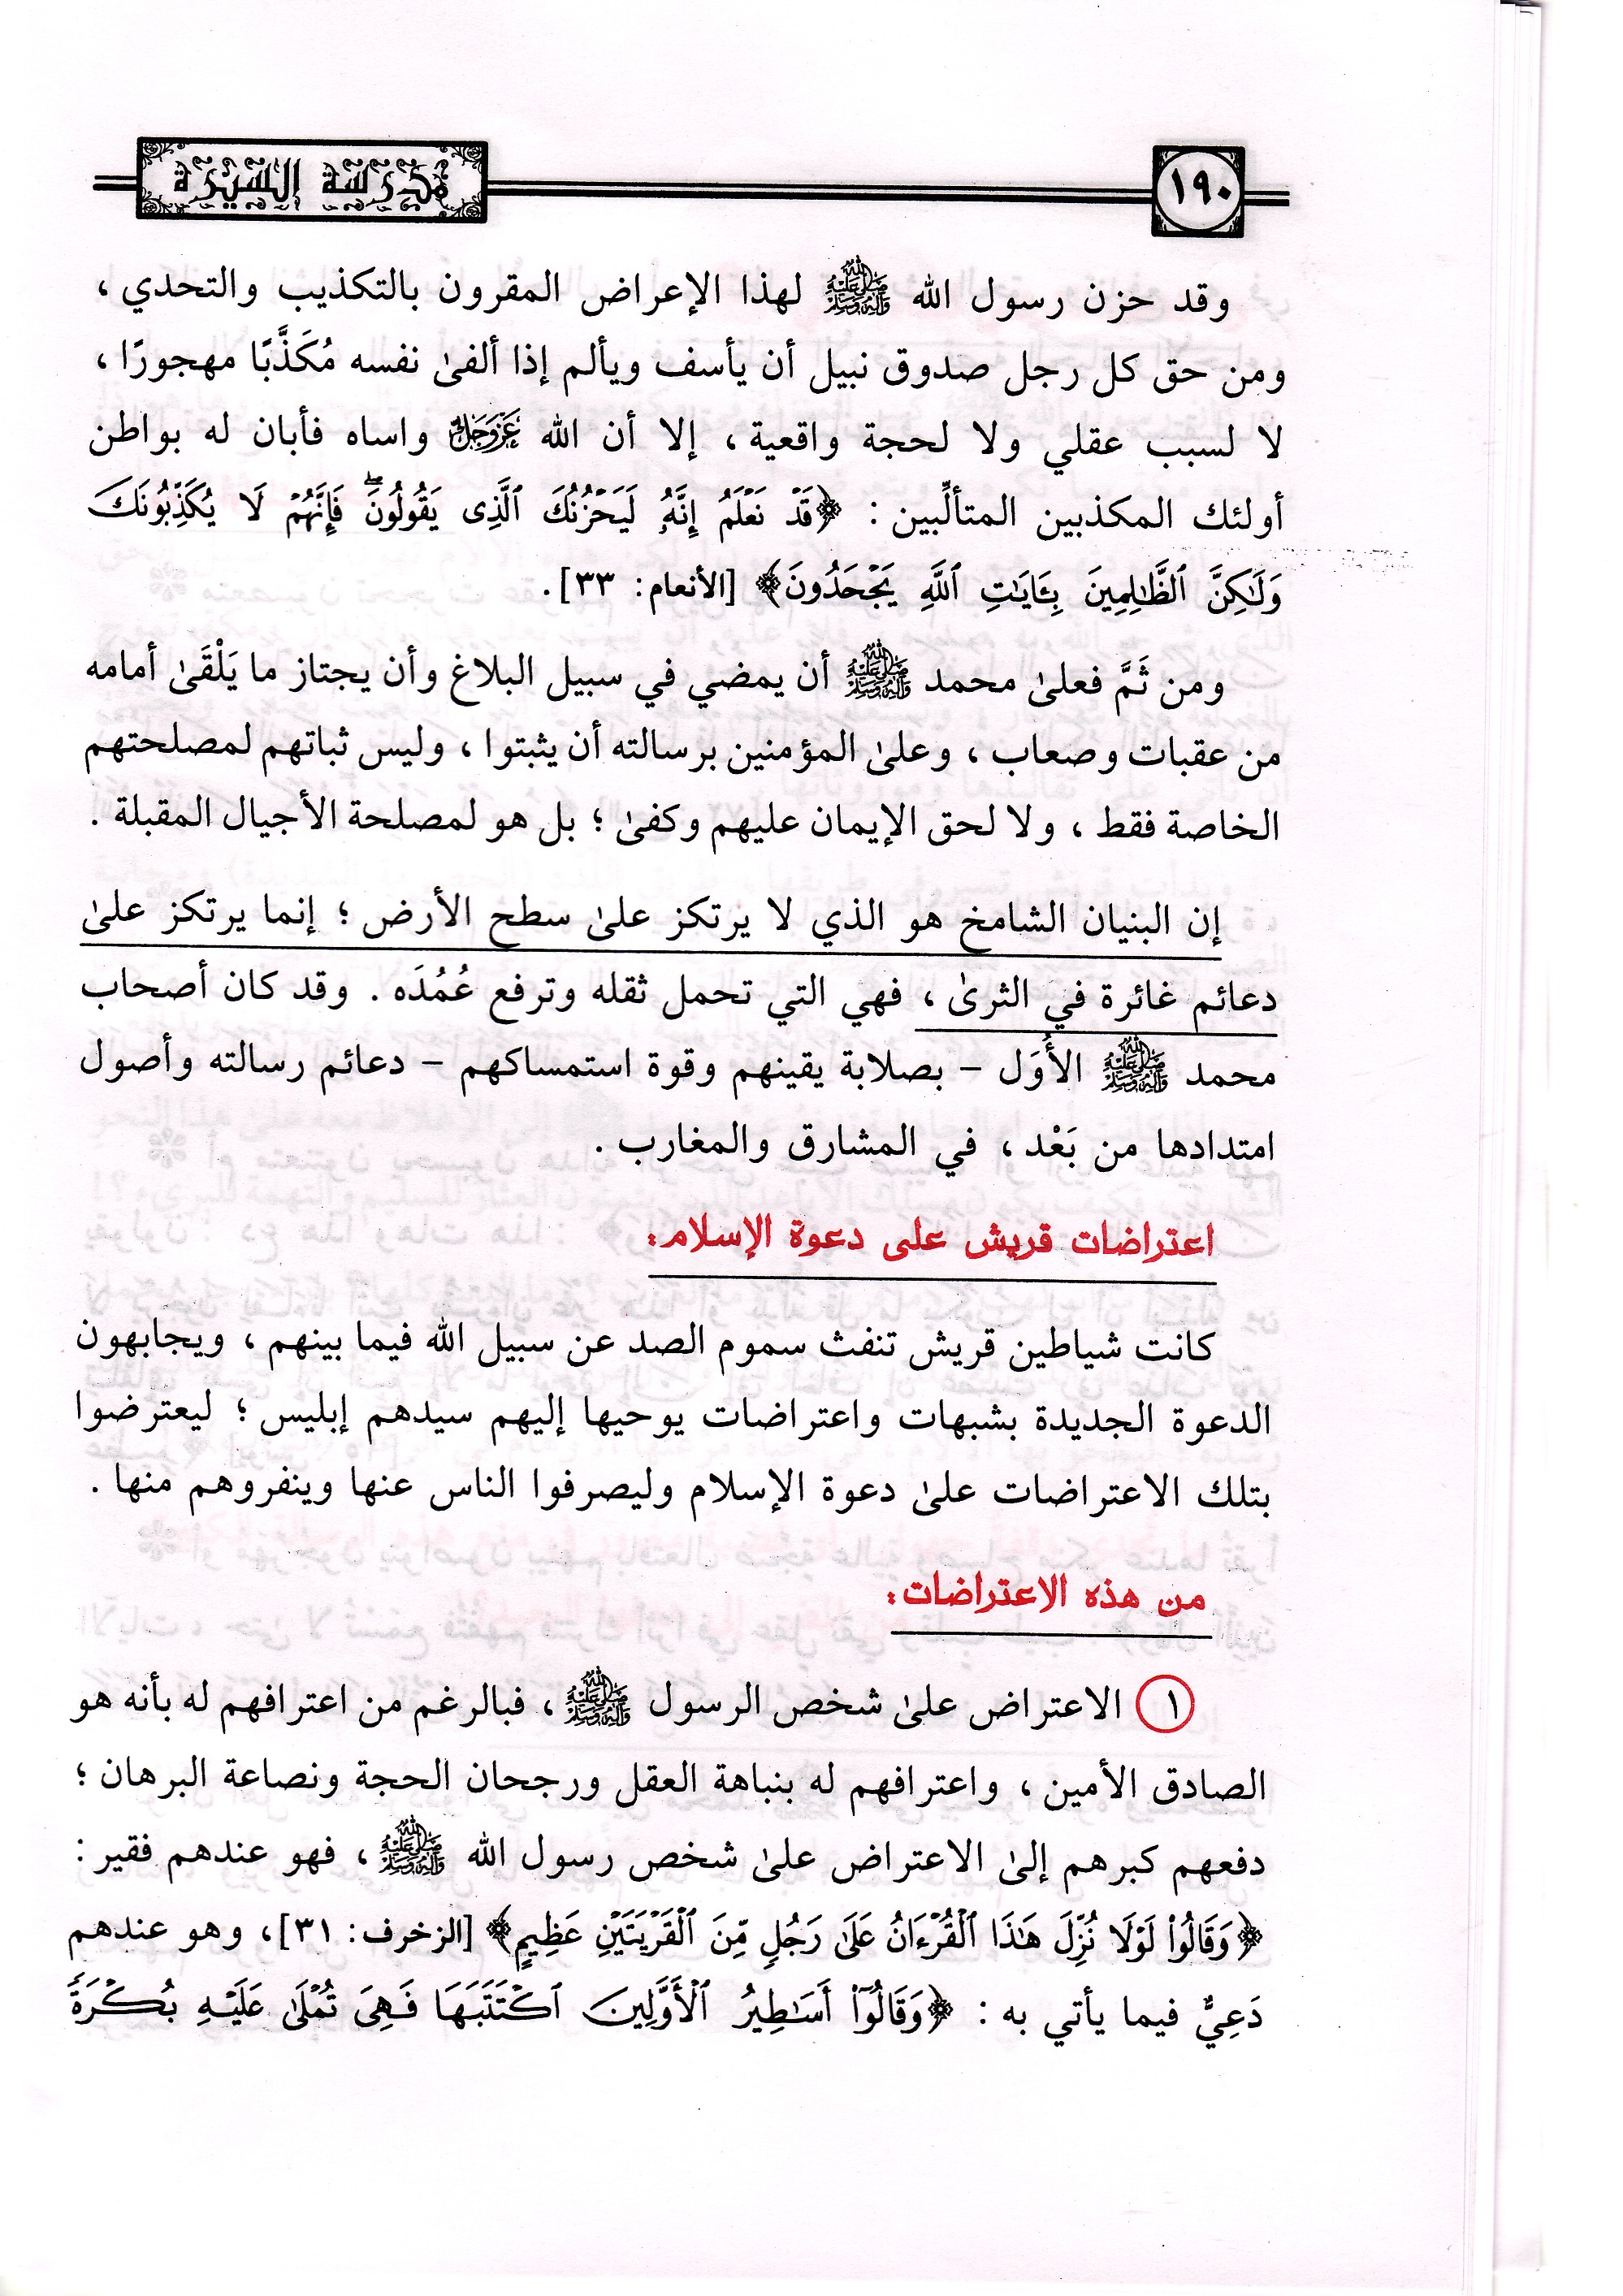 مدرسة السيرة
١٩٠
وقد حزن رسول الله ﷺ لهذا الإعراض المقرون بالتكذيب والتحدي ،
ومن حق كل رجل صدوق نبيل أن يأسف ويألم إذا ألفىٰ نفسه مُكَذَّبًا مهجورًا ،
لا لسبب عقلي ولا لحجة واقعية ، إلا أن الله عَزَّوَجَلَّ واساه فأبان له بواطن
أولئك المكذبين المتألِّبين : ﴿قَدۡ نَعۡلَمُ إِنَّهُۥ لَيَحۡزُنُكَ ٱلَّذِى يَقُولُونَۖ فَإِنَّهُمۡ لَا يُكَذِّبُونَكَ
وَلَٰكِنَّ ٱلظَّٰلِمِينَ بِـَٔايَٰتِ ٱللَّهِ يَجۡحَدُونَ﴾ [الأنعام: ٣٣] .
ومن ثَمَّ فعلىٰ محمد ﷺ أن يمضي في سبيل البلاغ وأن يجتاز ما يَلْقَىٰ أمامه
من عقبات وصعاب ، وعلىٰ المؤمنين برسالته أن يثبتوا ، وليس ثباتهم لمصلحتهم
الخاصة فقط ، ولا لحق الإيمان عليهم وكفىٰ ؛ بل هو لمصلحة الأجيال المقبلة .
إن البنيان الشامخ هو الذي لا يرتكز علىٰ سطح الأرض ؛ إنما يرتكز علىٰ
دعائم غائرة في الثرىٰ ، فهي التي تحمل ثقله وترفع عُمُدَه . وقد كان أصحاب
محمد ﷺ الأُوَل – بصلابة يقينهم وقوة استمساكهم – دعائم رسالته وأصول
امتدادها من بَعْد ، في المشارق والمغارب .
اعتراضات قريش على دعوة الإسلام:
كانت شياطين قريش تنفث سموم الصد عن سبيل الله فيما بينهم ، ويجابهون
الدعوة الجديدة بشبهات واعتراضات يوحيها إليهم سيدهم إبليس ؛ ليعترضوا
بتلك الاعتراضات علىٰ دعوة الإسلام وليصرفوا الناس عنها وينفروهم منها .
من هذه الاعتراضات:
١ الاعتراض علىٰ شخص الرسول ﷺ ، فبالرغم من اعترافهم له بأنه هو
الصادق الأمين ، واعترافهم له بنباهة العقل ورجحان الحجة ونصاعة البرهان ؛
دفعهم كبرهم إلىٰ الاعتراض علىٰ شخص رسول الله ﷺ ، فهو عندهم فقير :
﴿وَقَالُواْ لَوۡلَا نُزِّلَ هَٰذَا ٱلۡقُرۡءَانُ عَلَىٰ رَجُلٖ مِّنَ ٱلۡقَرۡيَتَيۡنِ عَظِيمٍ﴾ [الزخرف: ٣١] ، وهو عندهم
دَعِيٌّ فيما يأتي به : ﴿وَقَالُوٓاْ أَسَٰطِيرُ ٱلۡأَوَّلِينَ ٱكۡتَتَبَهَا فَهِىَ تُمۡلَىٰ عَلَيۡهِ بُكۡرَةٗ